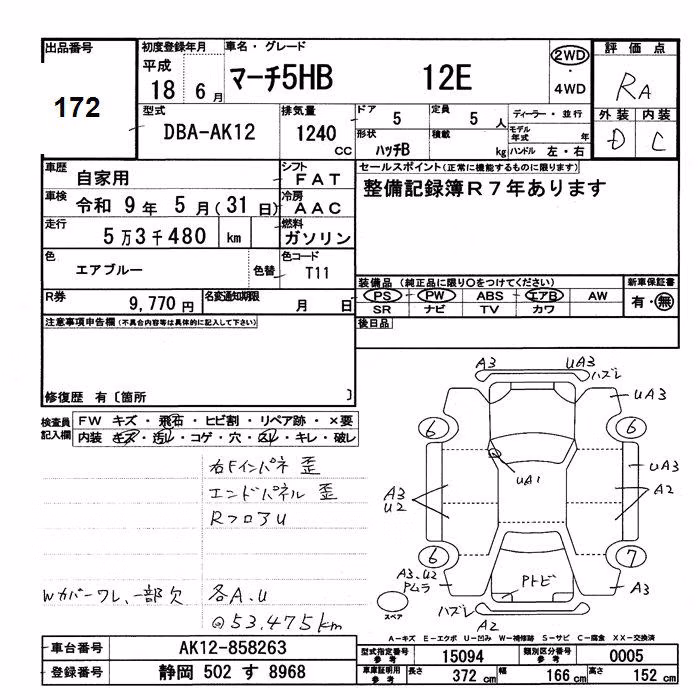 出品番号
172
初度登録年月
平成
18 6月
車名・グレード
マーチ5HB 12E
2WD
・
4WD
評価点
RA
外装 内装
D C
型式
DBA-AK12
排気量
1240
CC
ドア 5
定員 5 人
ディーラー・並行
形状
ハッチB
積載
kg
モデル年式 年
ハンドル 左・右
車歴 自家用
シフト FAT
車検 令和 9年 5月(31日)
冷房 AAC
走行 5万3千480 km
燃料 ガソリン
色 エアブルー
色替
色コード T11
R券 9,770円
名変通知期限 月 日
セールスポイント(正常に機能するものに限ります)
整備記録簿R7年あります
装備品 (純正品に限り〇をつけてください)
新車保証書
PS PW ABS エアB AW
有・無
SR ナビ TV カワ
後日品
注意事項申告欄(不具合内容等は具体的に記入して下さい)
修復歴 有〔箇所 〕
検査員記入欄
FW キズ・飛石・ヒビ割・リペア跡・×要
内装 キズ・汚レ・コゲ・穴・スレ・キレ・破レ
右Fインパネ 歪
エンドパネル 歪
RフロアU
Wカバーワレ、一部欠 各A、U
53.475km
A3 UA3
ハズレ
UA3
6 6
UA1
UA3
A3
U2
A2
6 7
A3、U2
Pムラ
Pトビ
A3
スペア
ハズレ
A2
A-キズ E-エクボ U-凹み W-補修跡 S-サビ C-腐食 XX-交換済
車台番号 AK12-858263
登録番号 静岡 502 す 8968
型式指定番号
参考
15094
類別区分番号
参考
0005
車庫証明用
参考
長さ 372 cm 幅 166 cm 高さ 152 cm